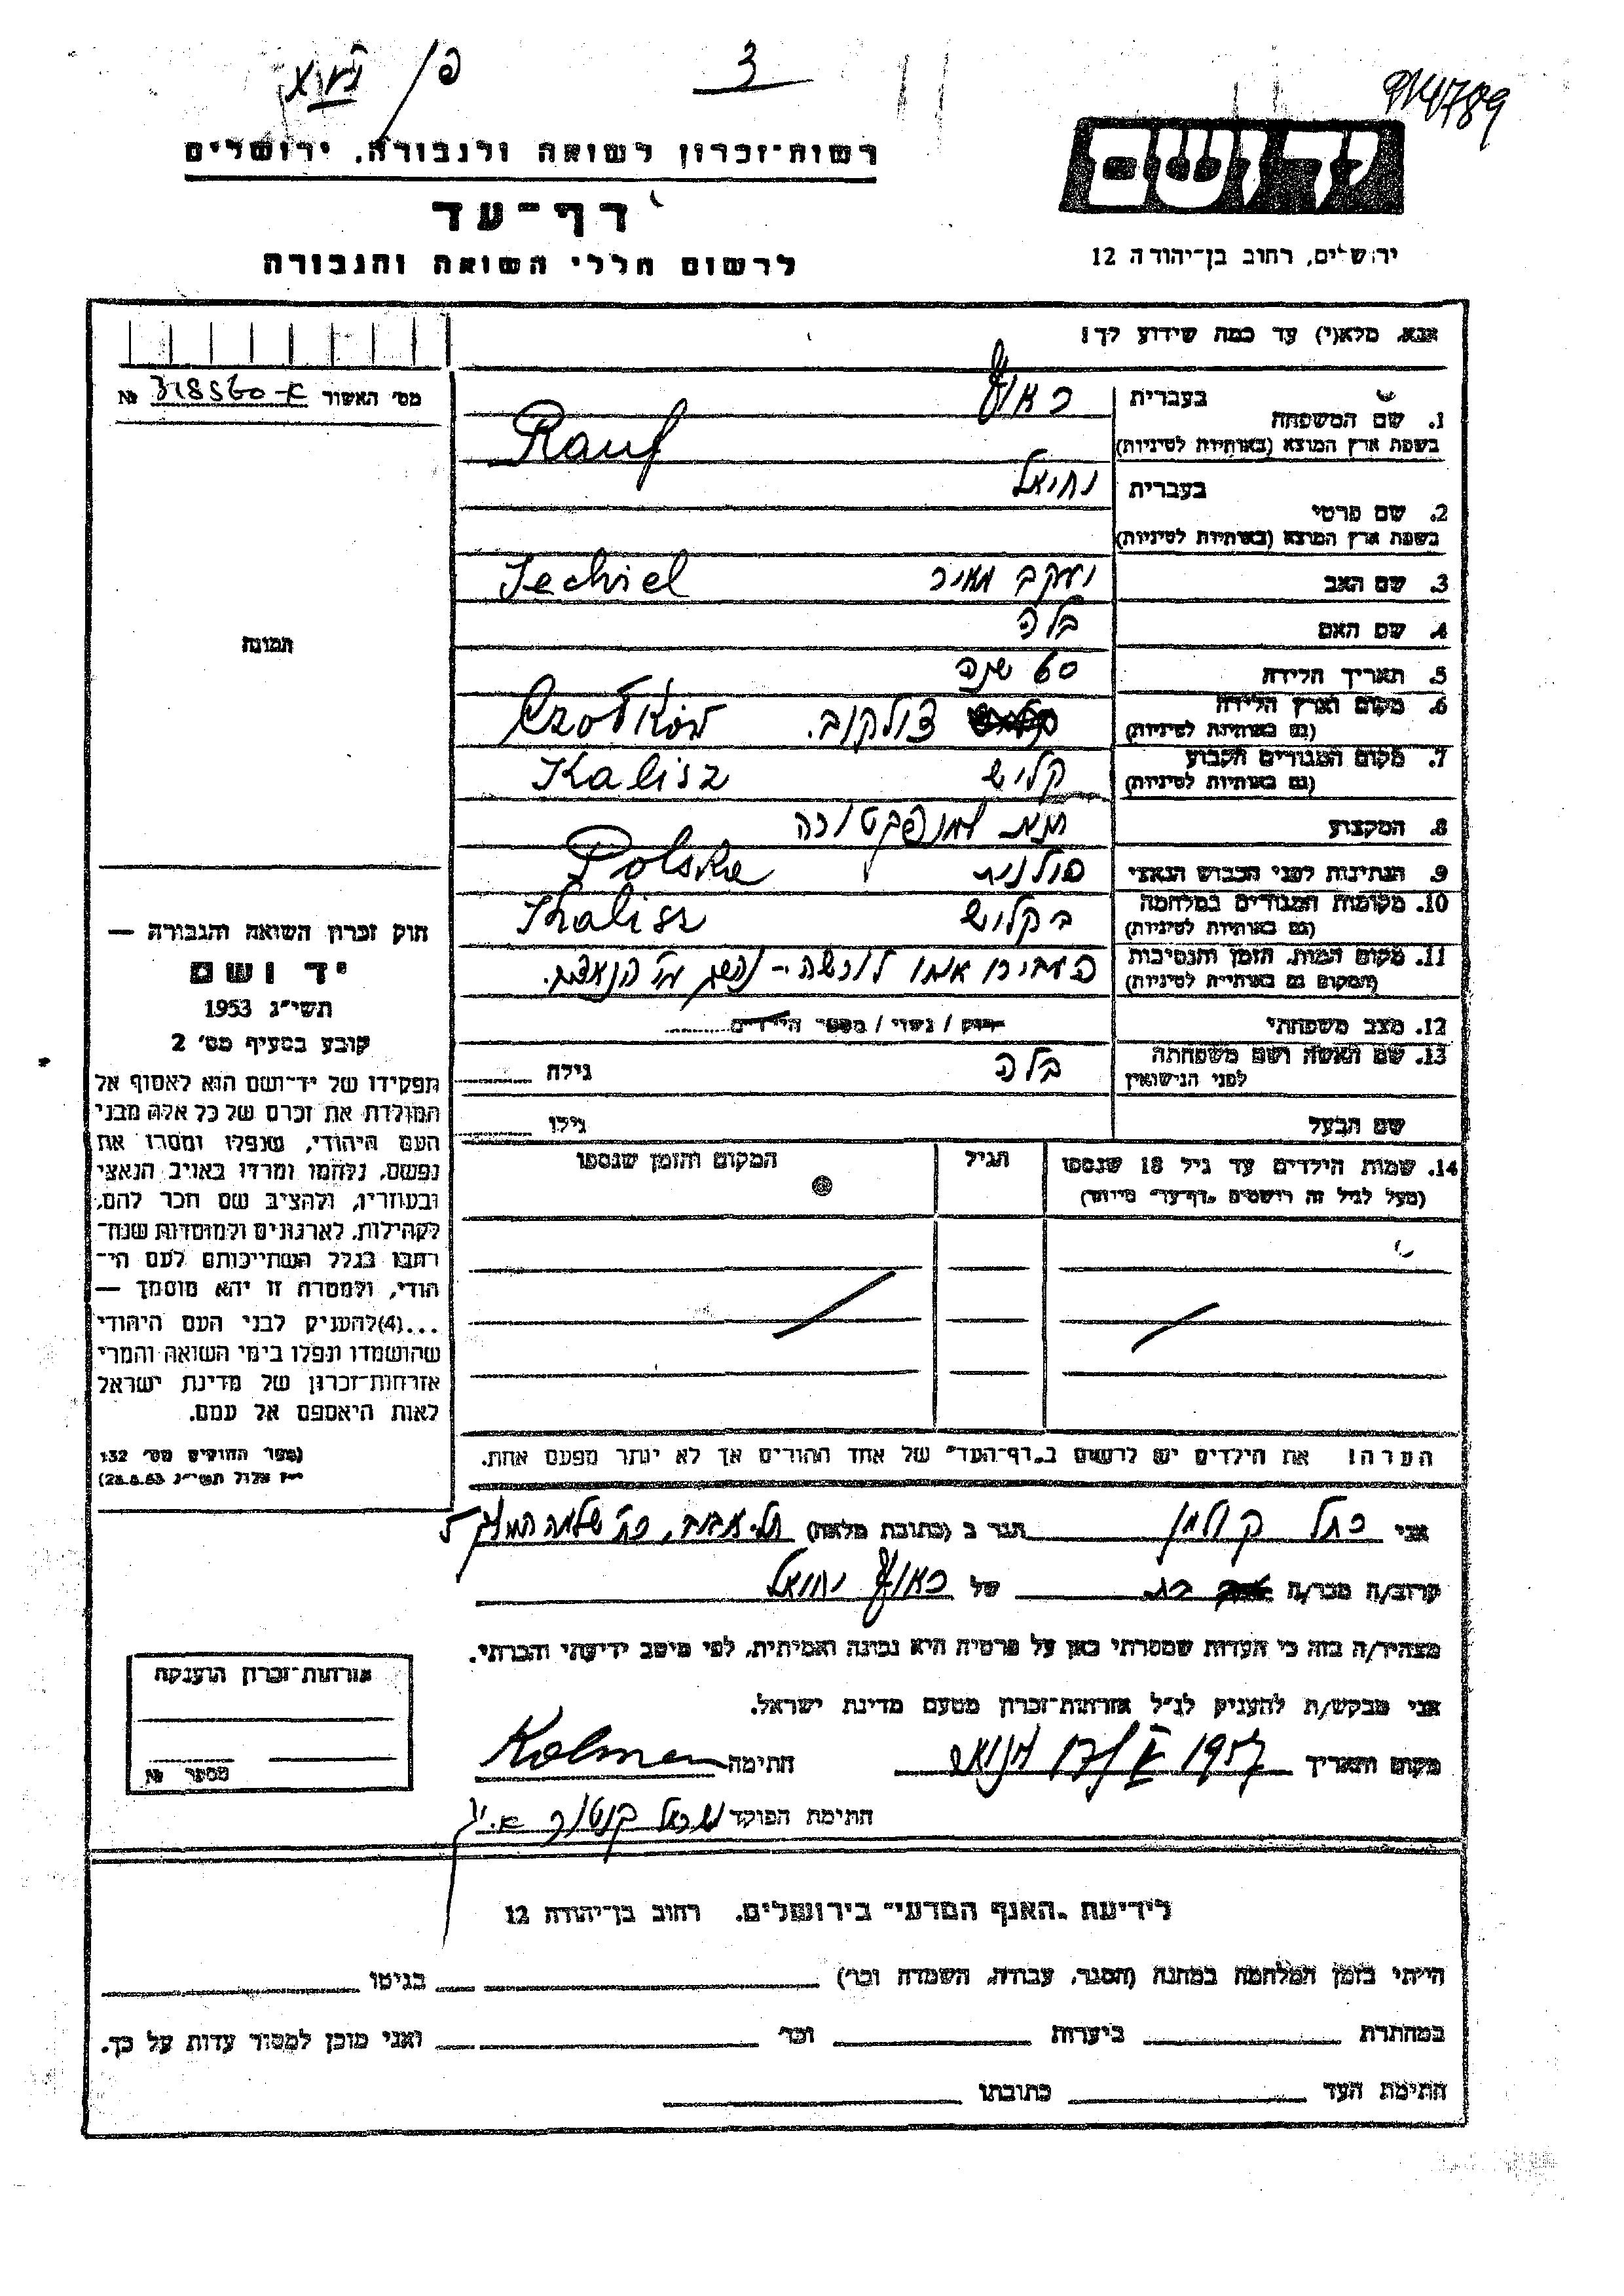 3
רשות־זכרון לשואה ולגבורה, ירושלים
דף־עד
לרשום חללי השואה והגבורה
יד ושם
ירושלים, רחוב בן־יהודה 12
אנא, מלא(י) עד כמה שידוע לך!
מס׳ האשור
№
1. שם המשפחה
בעברית ראוף
בשפת ארץ המוצא (באותיות לטיניות) Rauf
2. שם פרטי
בעברית יחיאל
בשפת ארץ המוצא (באותיות לטיניות)
3. שם האב יעקב מאיר Jechiel
4. שם האם בלה
5. תאריך הלידה 60 שנה
6. מקום וארץ הלידה צולקוב.
(גם באותיות לטיניות)
7. מקום המגורים הקבוע קליש Kalisz
(גם באותיות לטיניות)
8. המקצוע
9. הנתינות לפני הכבוש הנאצי פולנית Polska
10. מקומות המגורים במלחמה בקליש Kalisz
(גם באותיות לטיניות)
11. מקום המות, הזמן והנסיבות העבירו אותו לורשה –
(המקום גם באותיות לטיניות)
12. מצב משפחתי רווק / נשוי / מספר הילדים
13. שם האשה ושם משפחתה בלה גילה
לפני הנישואין
שם הבעל גילו
14. שמות הילדים עד גיל 18 שנספו הגיל המקום והזמן שנספו
(מעל לגיל זה רושמים „דף־עד״ מיוחד)
הערה! את הילדים יש לרשום ב„דף־העד״ של אחד ההורים אך לא יותר מפעם אחת.
תמונה
חוק זכרון השואה והגבורה —
יד ושם
תשי״ג 1953
קובע בסעיף מס׳ 2
תפקידו של יד־ושם הוא לאסוף אל
המולדת את זכרם של כל אלה מבני
העם היהודי, שנפלו ומסרו את
נפשם, נלחמו ומרדו באויב הנאצי
ובעוזריו, ולהציב שם וזכר להם,
לקהילות, לארגונים ולמוסדות שנח־
רבו בגלל השתייכותם לעם הי־
הודי, ולמטרה זו יהא מוסמך —
...(4)להעניק לבני העם היהודי
שהושמדו ונפלו בימי השואה והמרי
אזרחות־זכרון של מדינת ישראל
לאות היאספם אל עמם.
(ספר החוקים מס׳ 132
י״ז אלול תשי״ג 28.8.53)
אני רחל קולמן הגר ב (כתובת מלאה) תל אביב, רח׳ שלמה המלך 5
קרוב/ה מכר/ה בת של ראוף יחיאל
מצהיר/ה בזה כי העדות שמסרתי כאן על פרטיה היא נכונה ואמיתית, לפי מיטב ידיעתי והכרתי.
אני מבקש/ת להעניק לנ״ל אזרחות־זכרון מטעם מדינת ישראל.
מקום ותאריך 17/V 1957 חתימה Kolman
חתימת הפוקד ישראל
אזרחות־זכרון הוענקה
מספר №
לידיעת „האגף המדעי״ בירושלים, רחוב בן־יהודה 12
הייתי בזמן המלחמה במחנה (הסגר, עבודה, השמדה וכו׳) בגיטו
במחתרת ביערות וכו׳ ואני מוכן למסור עדות על כך.
חתימת העד כתובתו